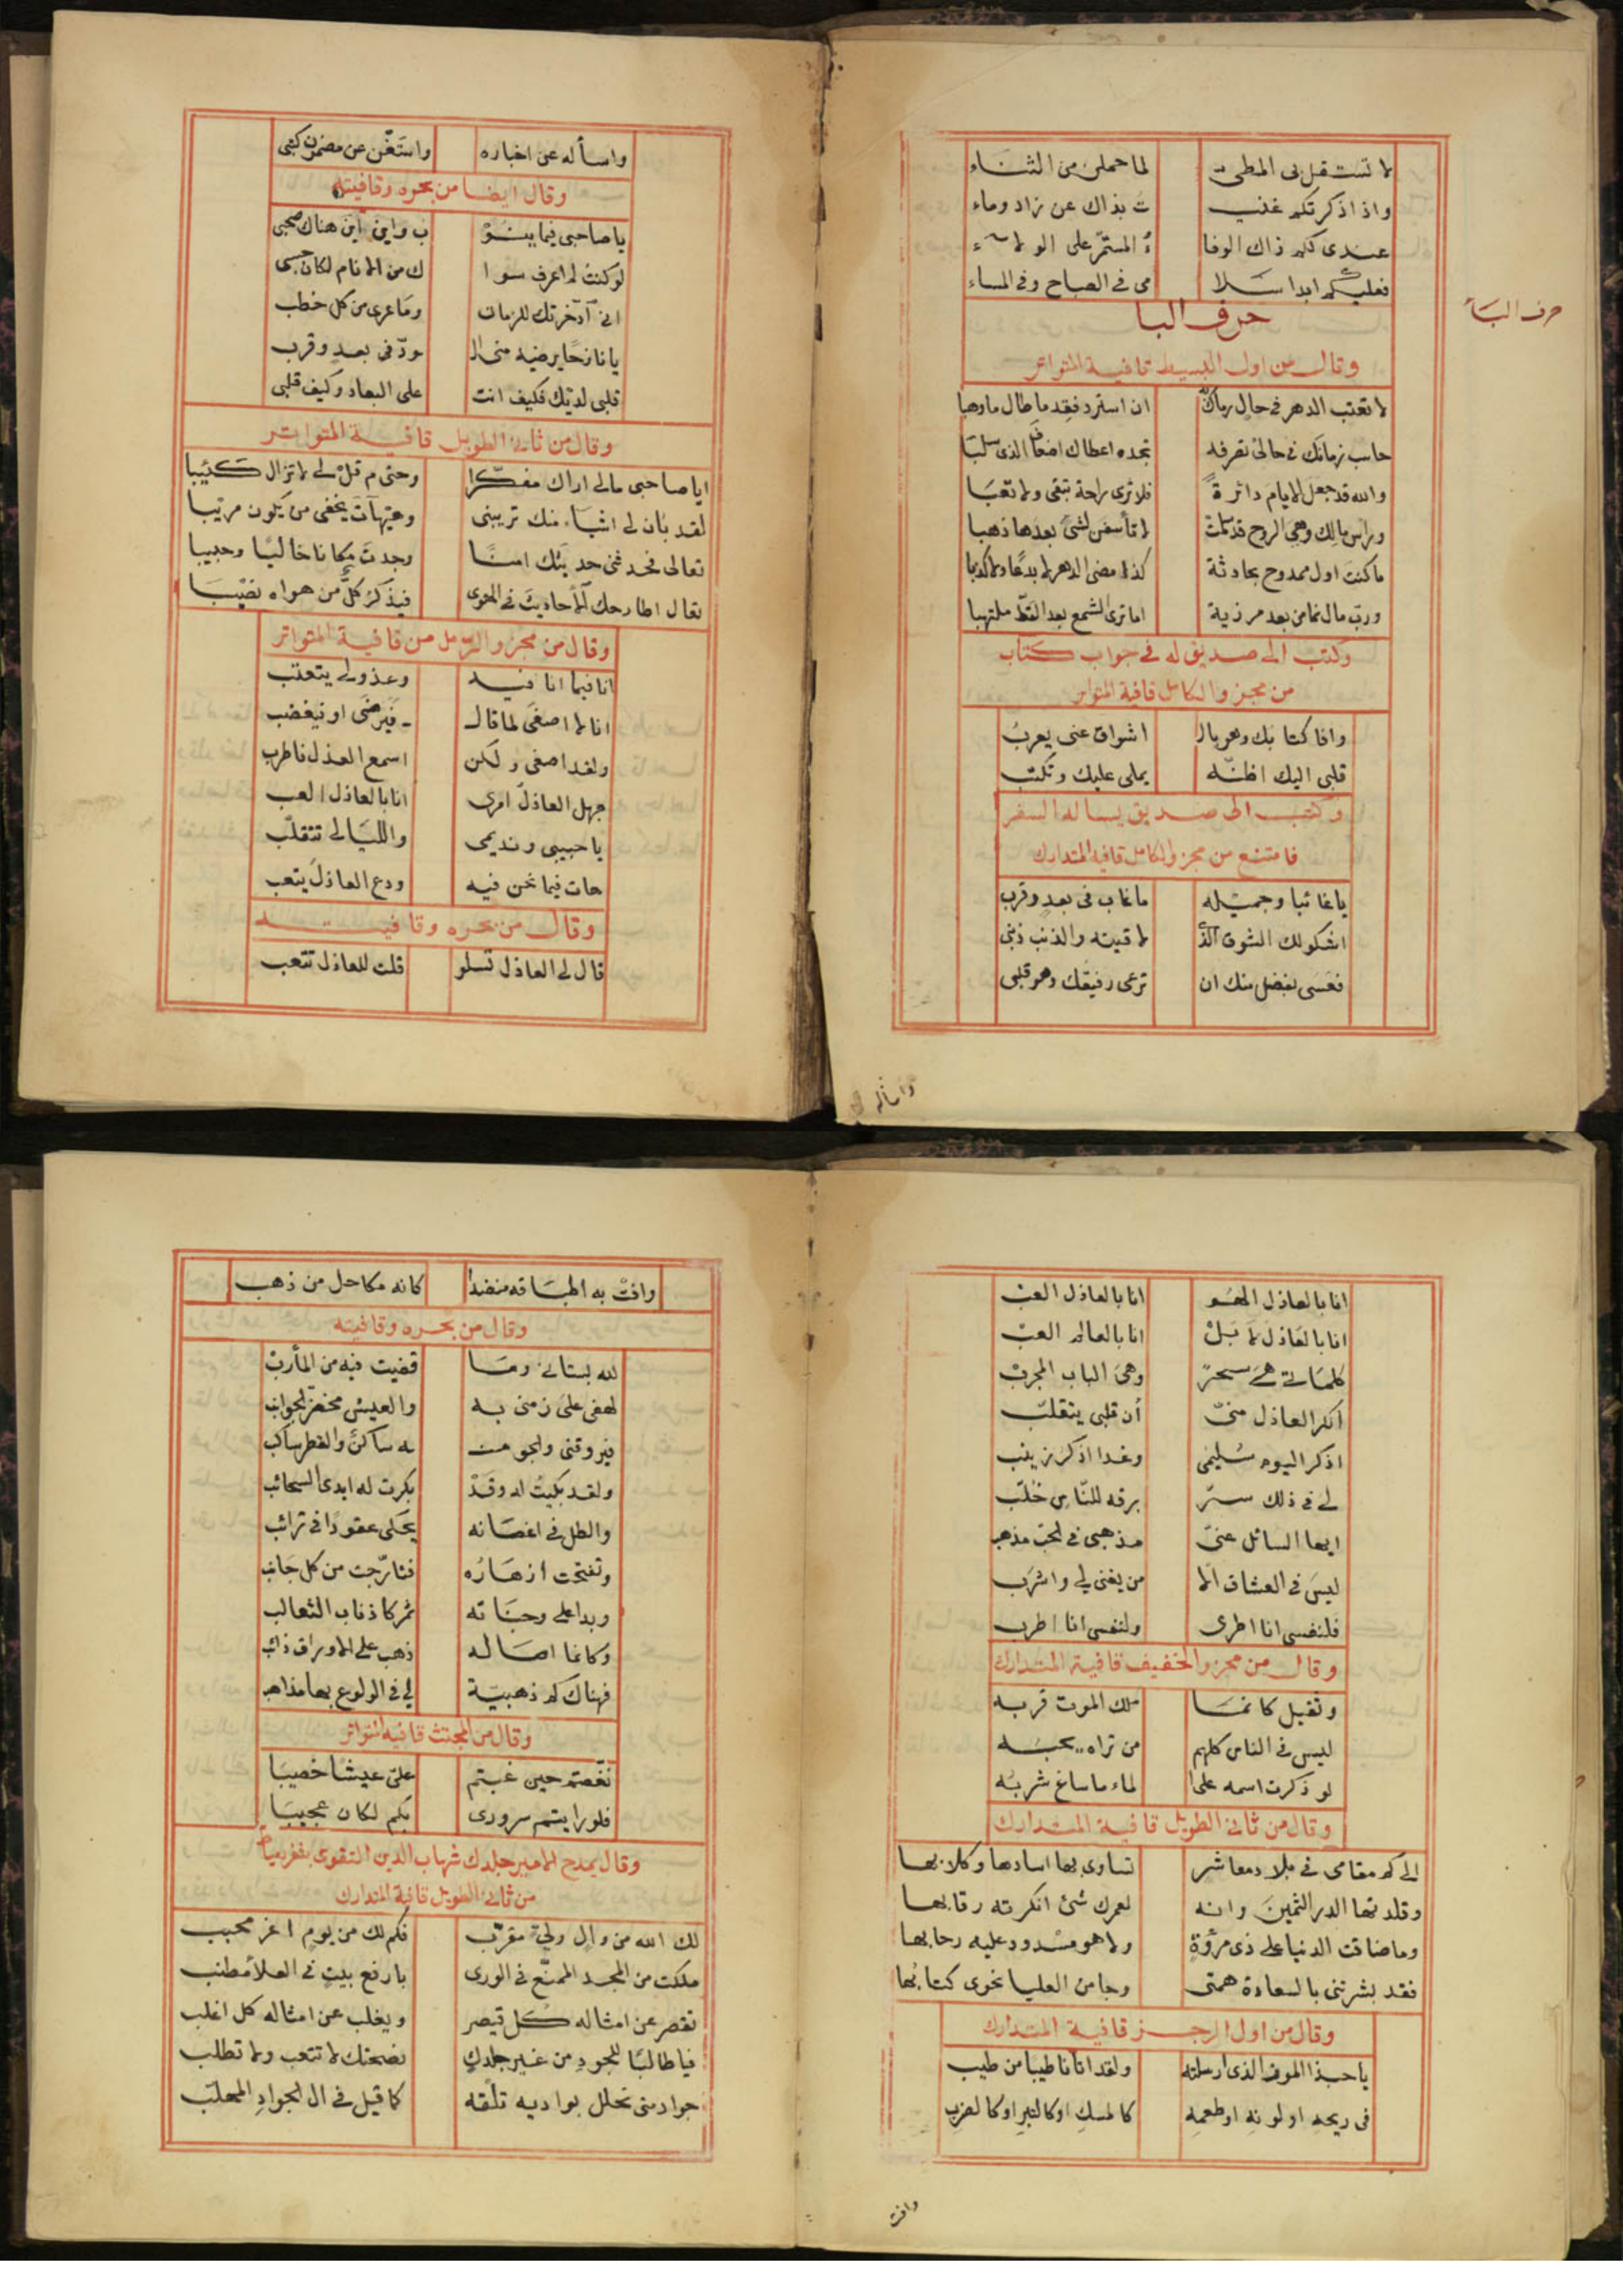 لا تستقل بى المطى لما حملن من الثناء
واذا ذكرتكم غنيـ ـت بذاك عن زاد وماء
عندى لكم ذاك الوفا ءُ المستمرّ على الولاء
فعليكم ابدا سلا مى فى الصباح وفى المساء
حرف البا
حرف الباء
وقال من اول البسيط قافية المتواتر
لا تعتب الدهر فى حال رماك به ان استرد فقدما طال ما وهبا
حاسب زمانك فى حالى تصرفه تجده اعطاك اضعاف الذى سلبا
والله قد جعل الايام دائرة فلا ترى راحة تبقى ولا تعبا
وراس مالك وهى الروح قد سلمت لا تأسفن لشئ بعدها ذهبا
ما كنت اول ممدوح بحادثة كذا مضى الدهر لا بدعًا ولا كذبا
ورب مال نما من بعد مرزية اما ترى الشمع بعد القط ملتهبا
وكتب الى صديق له فى جواب كتاب
من مجزو الكامل قافية المتواتر
وافا كتابك وهو بالـ اشواق عنى يعربُ
قلبى اليك اظنّه يملى عليك وتكتب
وكتب الى صديق يساله السفر
فامتنع من مجزو الكامل قافية المتدارك
يا غائبا وجميله ما غاب فى بعدٍ وقرب
اشكو لك الشوق الذى لاقيته والذنب ذنبى
فعسى بفضل منك ان ترعى رفيقك وهو قلبى
واسأله
واسأله عن اخباره واستغن عن مضمون كتبى
وقال ايضا من بحره وقافيته
يا صاحبى فيما ينو ب واين اين هناك صحبى
لو كنت لم اعرف سوا ك من الانام لكان حسبى
انى ادّخرتك للزمان وما عرى من كل خطب
يا نازحًا يرضيه منى الـ ـودّ فى بعد وقرب
قلبى لديك فكيف انت على البعاد وكيف قلبى
وقال من ثانى الطويل قافية المتواتر
ايا صاحبى مالى اراك مفكّرا وحتى م قل لى لا تزال كئيبا
لقد بان لى اشياء منك تريبنى وهيهات يخفى من يكون مريبا
تعالى فحدثنى حديثك امنًا وجدت مكانا خاليًا وحبيبا
تعال اطارحك الأحاديث فى الهوى فيذكر كلّ من هواه نصيبا
وقال من مجزو الرمل من قافية المتواتر
انا فيما انا فيه وعذولى يتعتب
انا لا اصغى لما قالـ ـفيرضى او فيغضب
ولقد اصغى ولكن اسمع العذل فاطرب
جهل العاذل امرى انا بالعاذل العب
يا حبيبى ونديمى والليالى تتقلّب
هات فيما نحن فيه ودع العاذل يتعب
وقال من بحره وقافيته
قال لى العاذل تسلو قلت للعاذل تتعب
انا بالعاذل الهو انا بالعاذل العب
انا بالعاذل لا بل انا بالعالم العب
كلماتى هى سحر وهى الباب المجرب
انكر العاذل منىّ أن قلبى يتقلّب
اذكر اليوم سُليمى وغدا اذكر زينب
لى فى ذلك سرّ برقه للناس خلّب
ايها السائل عنىّ مذهبى فى الحب مذهب
ليس فى العشاق الا من يغنى لى واشرب
فلنفسى انا اطرى ولنفسى انا اطرب
وقال من مجزو الخفيف قافية المتدارك
وثقيل كانما ملك الموت قربه
ليس فى الناس كلهم من تراه يحبه
لو ذكرت اسمه على الماء ما ساغ شربه
وقال من ثانى الطويل قافية المتدارك
الى كم مقامى فى بلاد معاشر تساوى بها اسادها وكلابها
وقلدتها الدر الثمين وانه لعمرك شئ انكرته رقابها
وما ضاقت الدنيا على ذى مرؤة ولا هو مسدود عليه رحابها
فقد بشرتنى بالسعادة همتى وجا من العليا نحوى كتابها
وقال من اول الرجز قافية المتدارك
يا حبذا الموز الذى ارسلته ولقد اتانا طيبا من طيب
فى ريحه او لونه او طعمه كالمسك او كالتبر او كالضرب
وافت
وافت به اطباقه منضدا كانه مكاحل من ذهب
وقال من بحره وقافيته
لله بستانى وما قضيت فيه من المأرب
لهفى على زمنى به والعيش مخضر الجوانب
فيروقنى والجو منـ ـه ساكن والقطر ساكب
ولقد بكيت له وقد بكرت له ايدى السحائب
والطل فى اغصانه يحكى عقودا فى ترائب
وتفتحت ازهاره فتارّجت من كل جانب
وبدا على وجناته ثمر كاذناب الثعالب
وكانما اصاله ذهب على الاوراق ذائب
فهناك كم ذهبيّة لى فى الولوع بها مذاهب
وقال من المجتث قافية المتواتر
نغصتم حين غبتم علىّ عيشا خصيبا
فلو رايتم سرورى بكم لكان عجيبا
وقال يمدح الامير جلدك شهاب الدين التقوى بثغر دمياط
من ثانى الطويل قافية المتدارك
لك الله من وال ولىّ مقرّب فكم لك من يوم اغر محبب
ملكت من المجد الممنّع فى الورى بارفع بيت فى العلا مطنب
تقصر عن امثاله كل قيصر ويغلب عن امثاله كل اغلب
فيا طالبًا للجود من غير جلدك نصحتك لا تتعب ولا تطلب
جواد متى تحلل بواديه تلقه كما قيل فى ال الجواد المهلب